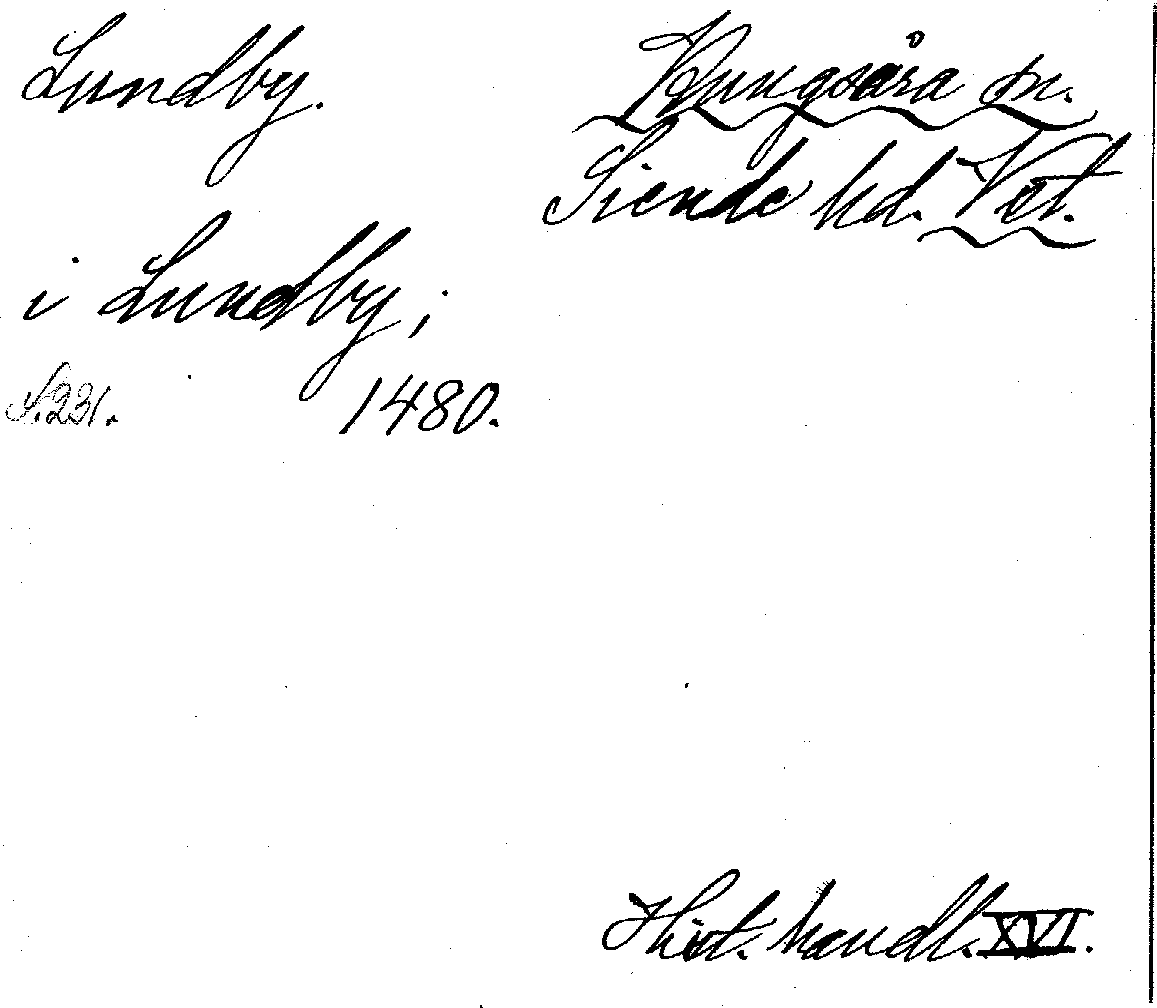 Lundby.
Kungsåra sn.
Siende hd. Vst.
i Lundby;
s. 231.
1480.
Hist. handl. XVI.